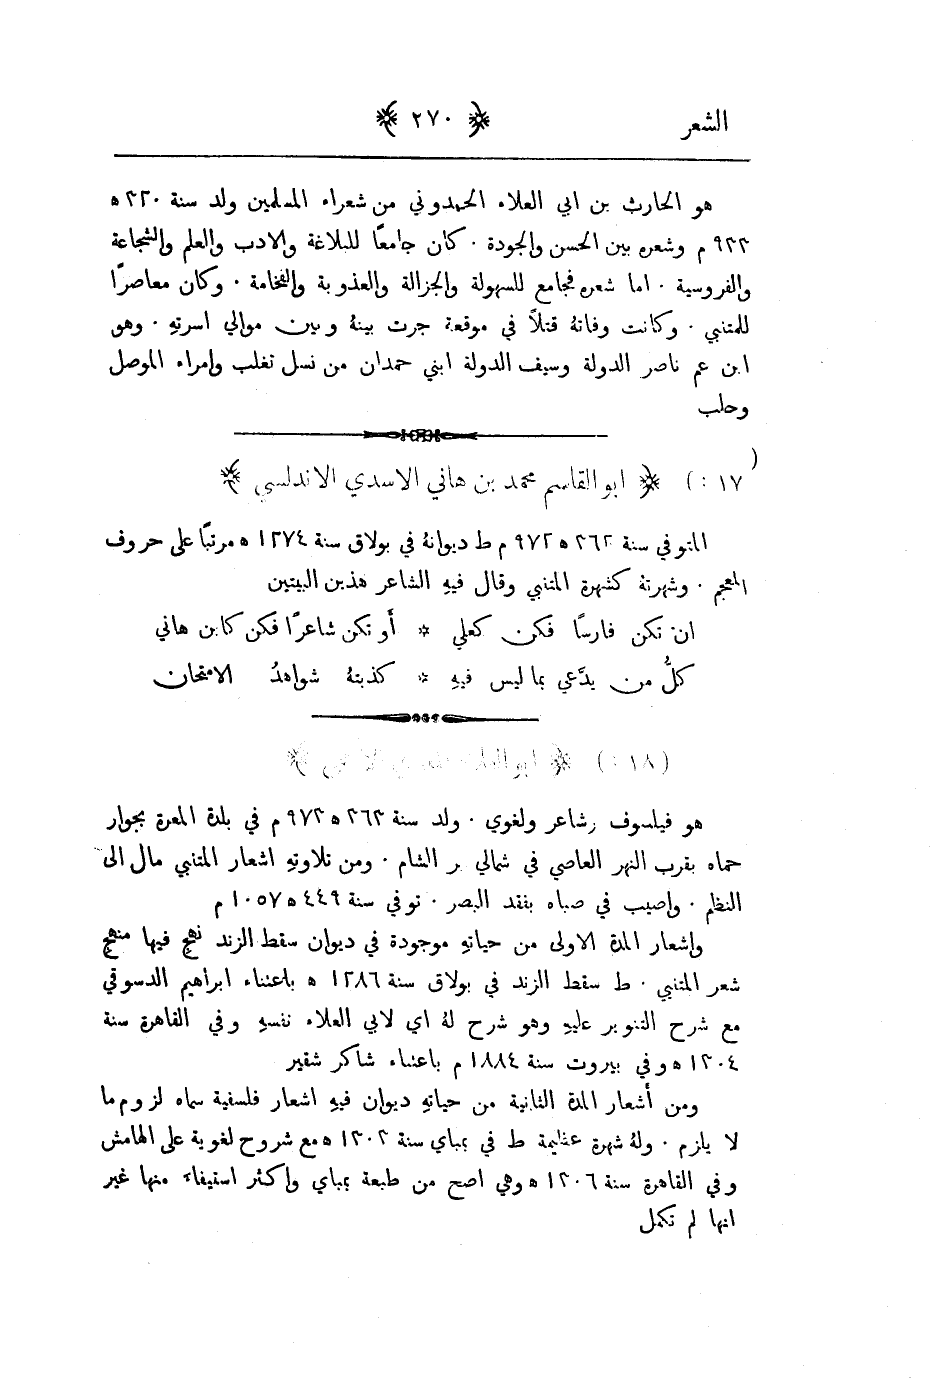 الشعر ﴿ ٢٧٠ ﴾
هو الحارث بن ابي العلاء الحمدوني من شعراء المسلمين ولد سنة ٣٢٠ ه
٩٣٢ م وشعره بين الحسن والجودة ٠ كان جامعًا للبلاغة والادب والعلم والشجاعة
والفروسية ٠ اما شعره فجامع للسهولة والجزالة والعذوبة والفخامة ٠ وكان معاصرًا
للمتنبي ٠ وكانت وفاتهُ قتلاً في موقعة جرت بينهُ وبين موالي اسرتهِ ٠ وهو
ابن عم ناصر الدولة وسيف الدولة ابني حمدان من نسل تغلب وامراء الموصل
وحلب
(١٧ :) ﴿ ابو القاسم محمد بن هاني الاسدي الاندلسي ﴾
المتوفي سنة ٣٦٢ ه ٩٧٢ م ط ديوانهُ في بولاق سنة ١٢٧٤ ه مرتبًا على حروف
المعجم ٠ وشهرتهُ كشهرة المتنبي وقال فيهِ الشاعر هذين البيتين
ان تكن فارسًا فكن كعلي * أو تكن شاعرًا فكن كابن هاني
كلُّ من يدَّعي بما ليس فيهِ * كذبتهُ شواهدُ الامتحان
(١٨ :) ﴿ ابو العلاء ﴾
هو فيلسوف وشاعر ولغوي ٠ ولد سنة ٣٦٣ ه ٩٧٣ م في بلدة المعرة بجوار
حماه بقرب النهر العاصي في شمالي بر الشام ٠ ومن تلاوتهِ اشعار المتنبي مال الى
النظم ٠ واصيب في صباه بفقد البصر ٠ توفي سنة ٤٤٩ ه ١٠٥٧ م
واشعار المدة الاولى من حياتهِ موجودة في ديوان سقط الزند نهج فيها منهج
شعر المتنبي ٠ ط سقط الزند في بولاق سنة ١٢٨٦ ه باعتناء ابراهيم الدسوقي
مع شرح التنوير عليهِ وهو شرح لهُ اي لابي العلاء نفسهِ وفي القاهرة سنة
١٣٠٤ ه وفي بيروت سنة ١٨٨٤ م باعتناء شاكر شقير
ومن أشعار المدة الثانية من حياتهِ ديوان فيهِ اشعار فلسفية سماه لزوم ما
لا يلزم ٠ ولهُ شهرة عظيمة ط في بمباي سنة ١٣٠٣ ه مع شروح لغوية على الهامش
وفي القاهرة سنة ١٣٠٦ ه وهي اصح من طبعة بمباي واكثر استيفاءً منها غير
انها لم تكمل